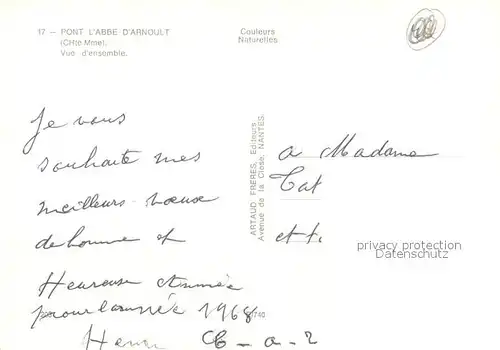 17 — PONT L'ABBE D'ARNOULT
(CHte Mme).
Vue d'ensemble.
Couleurs
Naturelles
Je vous
souhaite mes
meilleurs voeux
de bonne et
Heureuse Année
pour l'année 1968
Henri
ARTAUD FRERES, Editeurs
Avenue de la Close, NANTES.
a Madame
privacy protection
Datenschutz